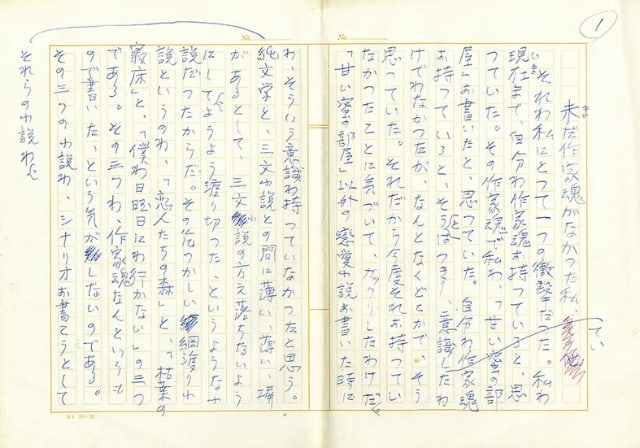 1
未だ作家魂がなかつた私
それわ私にとつて一つの衝撃だった。私わ
現在まで、自分わ作家魂お持つていると、思
つていた。その作家魂で私わ、「甘い蜜の部
屋」お書いたと、思つていた。自分わ作家魂
お持つていると、そうはつきり意識したわ
けでわなかつたが、なんとなくどこかで、そう
思つていた。それだから今度それお持つてい
なかつたことに気づいて、ガッカリしたわけだ
「甘い蜜の部屋」以外の恋愛小説お書いた時に
わ、そういう意識わ持つていなかつたと思う。
純文学と、三文小説との間に薄い、薄い、塀
があるとして、三文小説の方え落ちないよう
にしてようよう渡り切つた、というような小
説だつたからだ。その危つかしい綱渡りわ
説というのわ、「恋人たちの森」と、「枯葉の
寝床」と、「僕わ日曜日にわ行かない」の三つ
である。その三つわ、作家魂なんというも
ので書いた、という気がしないのである。
その三つの小説わ、シナリオお書こうとして
それらの小説わ